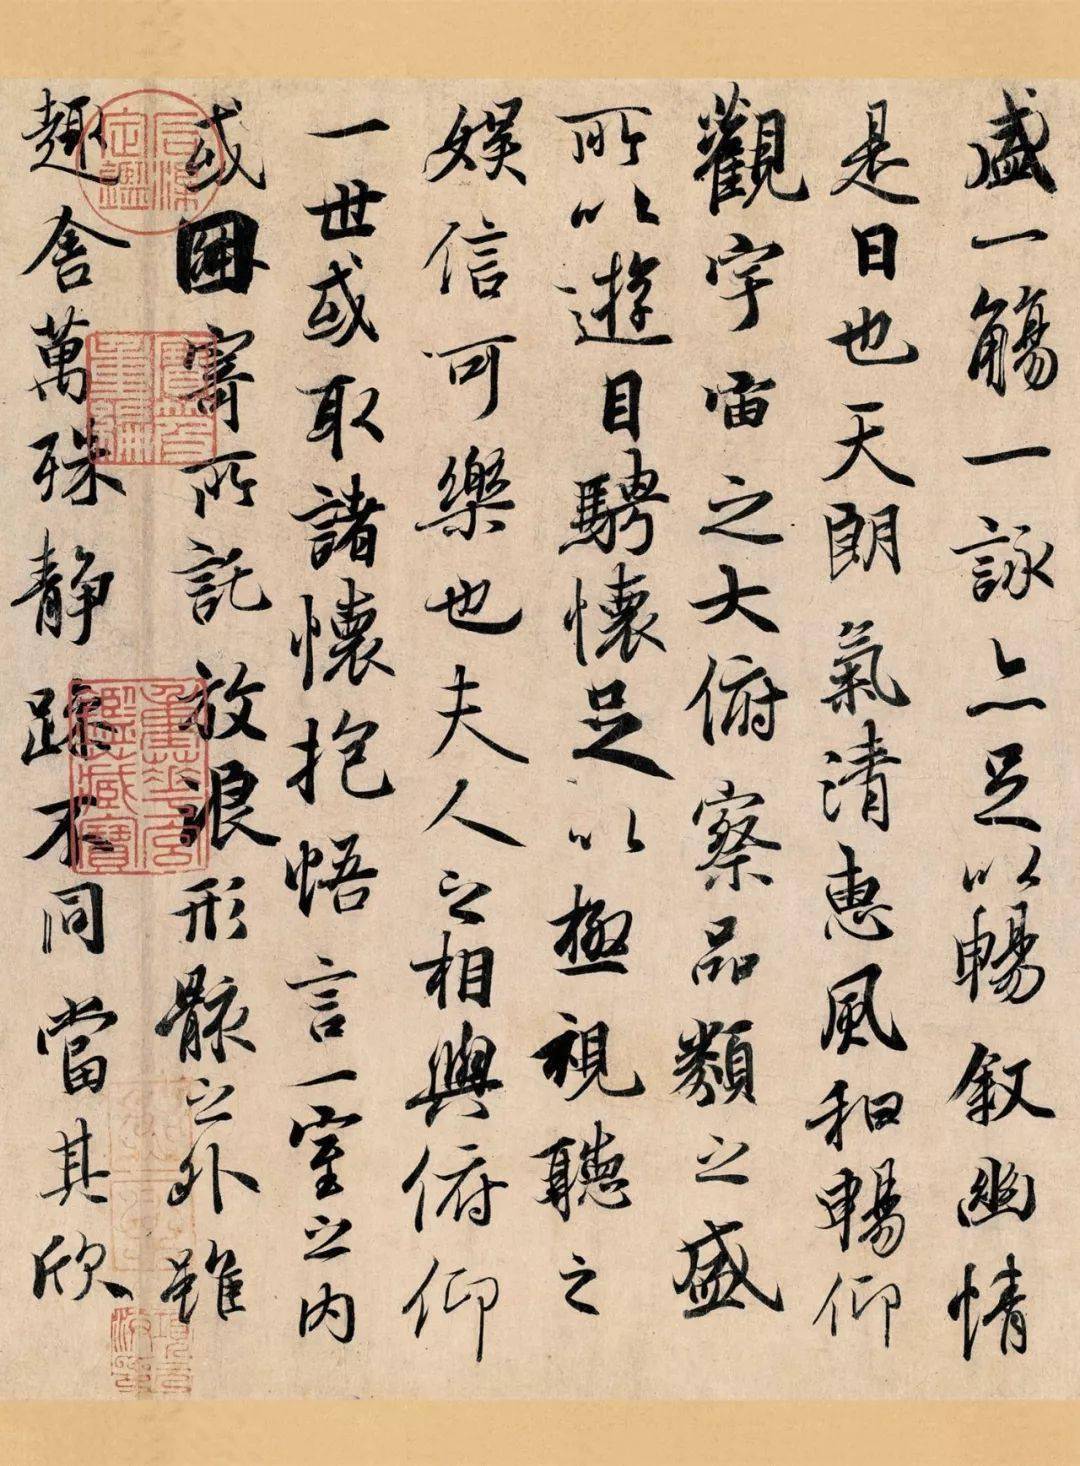 盛一觴一詠亦足以暢叙幽情
是日也天朗氣清惠風和暢仰
觀宇宙之大俯察品類之盛
所以遊目騁懷足以極視聽之
娛信可樂也夫人之相與俯仰
一世或取諸懷抱悟言一室之内
或因寄所託放浪形骸之外雖
趣舍萬殊静躁不同當其欣
石渠定鑑
寶笈重編
重華宮鑑藏寶